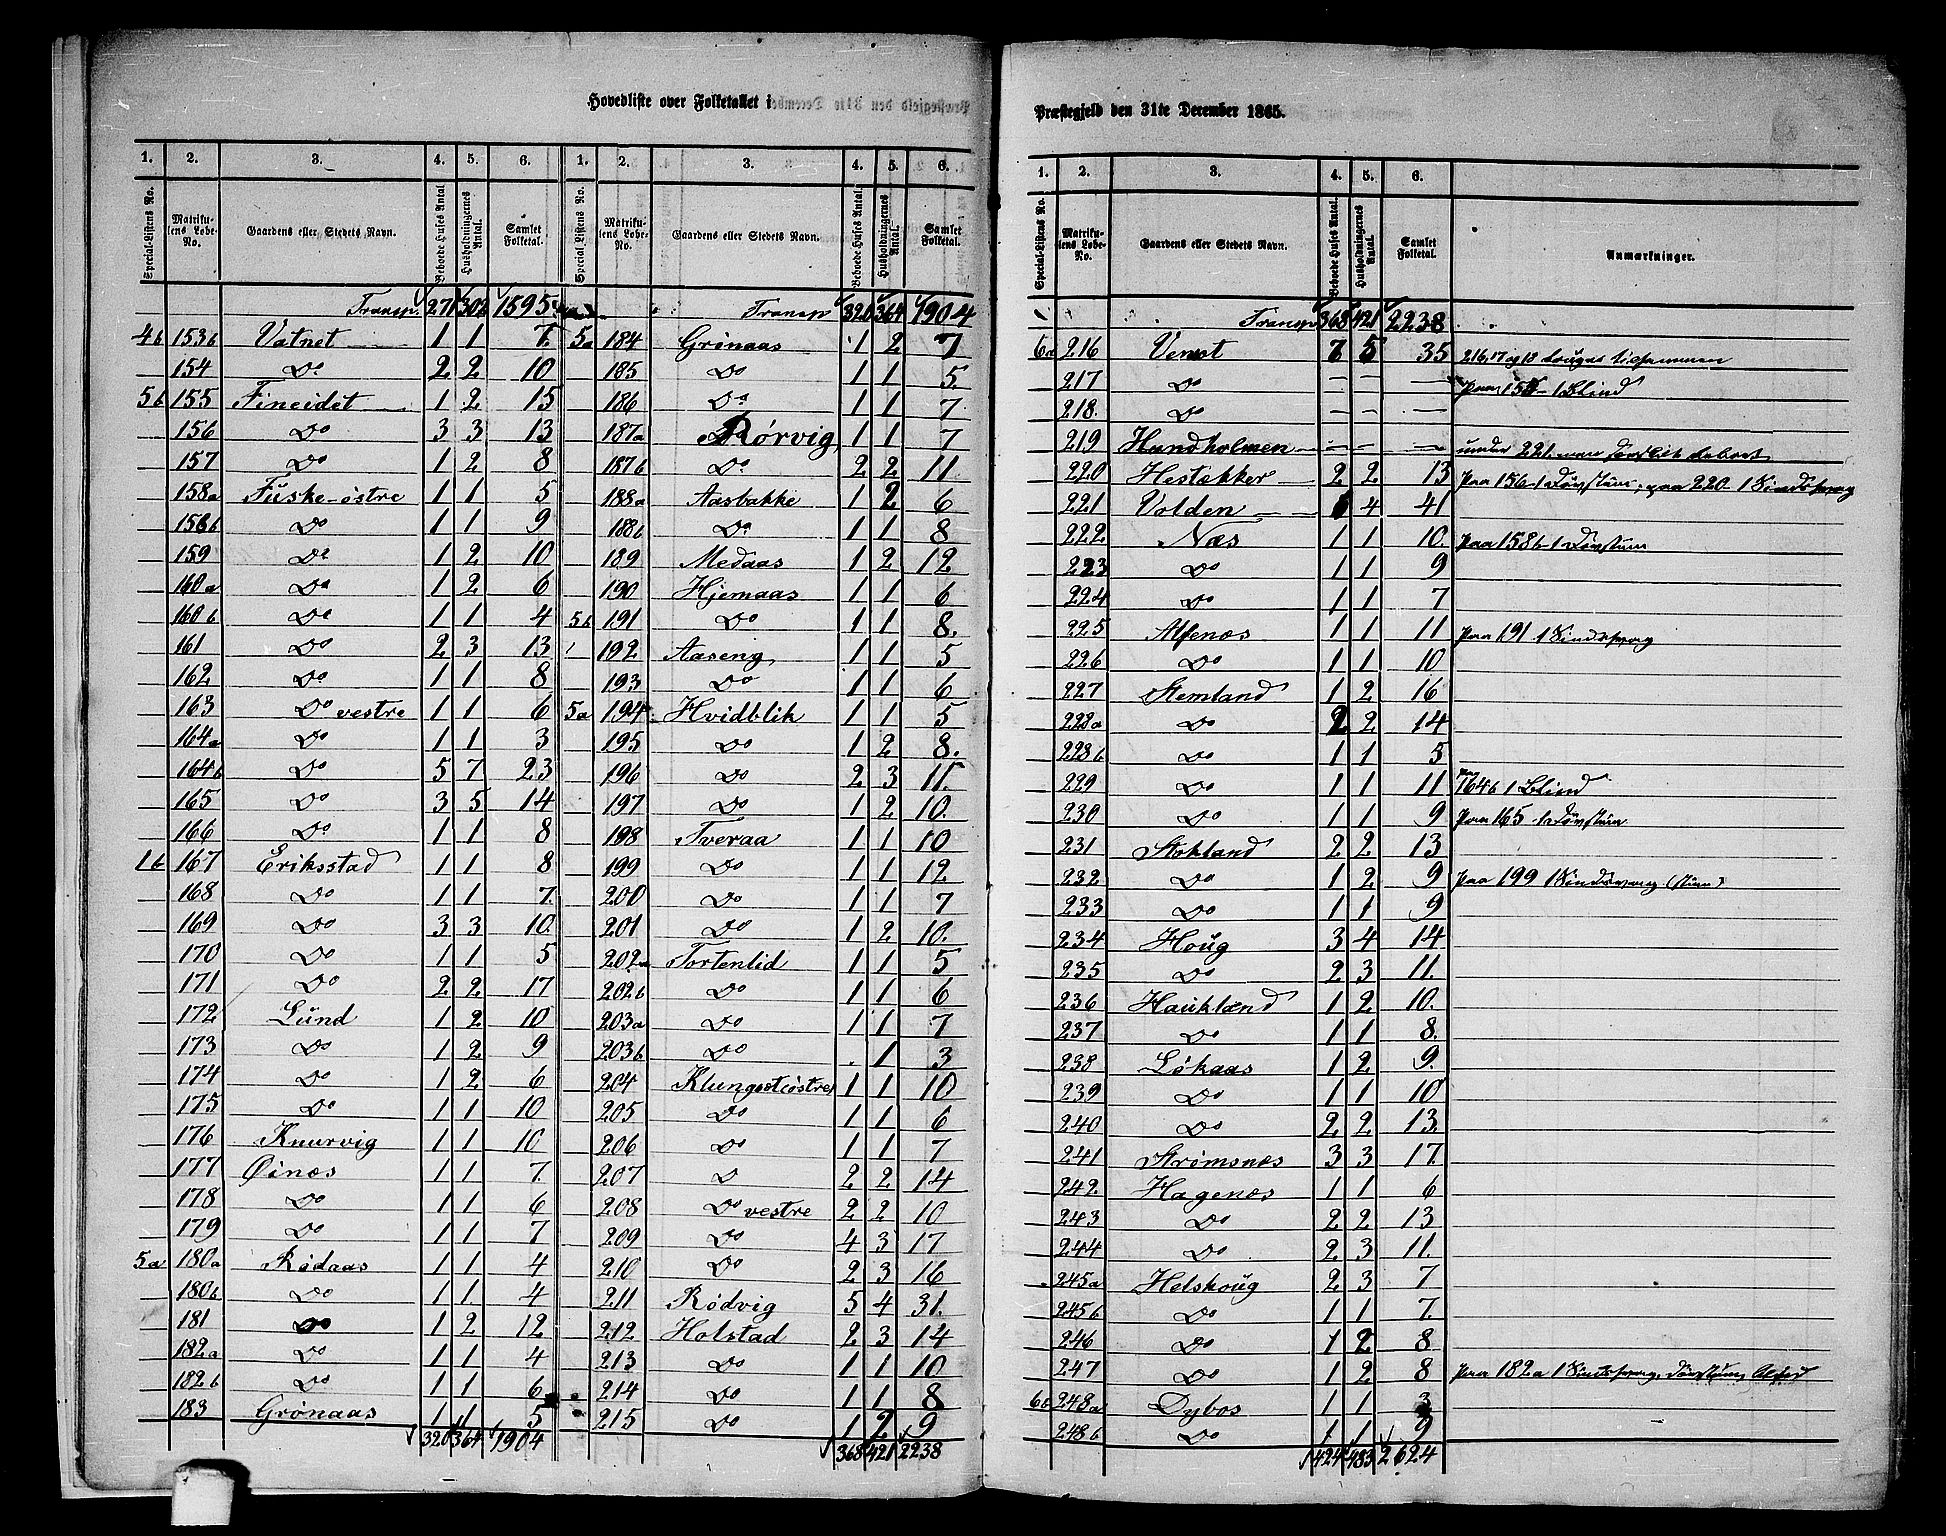 Hovedliste over Folketallet i
1. 2. 3. 4. 5. 6. 1. 2. 3. 4. 5. 6.
Special-Listens No. Matrikulens Løbe-No. Gaardens eller Stedets Navn. Beboede Huses Antal. Husholdningernes Antal. Samlet Folketal. Special Listens No. Matrikulens Løbe-No. Gaardens eller Stedets Navn. Beboede Huses Antal. Husholdningernes Antal. Samlet Folketal.
Transp. 271 302 1595 Transp 320 364 1904
4b 153b Vatnet 1 1 7. 5a 184 Grønaas 1 2 7
154 Do 2 2 10 185 Do 1 1 5.
5b 155 Fineidet 1 2 15 186 Do 1 1 7
156 Do 3 3 13 187a Rørvig 1 1 7
157 Do 1 2 8 187b Do 2 2 11
158a Fuske-østre 1 1 5 188a Aasbakke 1 2 6
158b Do 1 1 9 188b Do 1 1 8
159 Do 1 2 10 189 Medaas 1 2 12
160a Do 1 2 6 190 Hjemaas 1 1 6
160b Do 1 1 4 5b 191 Do 1 1 8.
161 Do 2 3 13 192 Aaseng 1 1 5
162 Do 1 1 8 193 Do 1 1 6
163 Do vestre 1 1 6 5a 194 Hvidblik 1 1 5
164a Do 1 1 3 195 Do 1 2 8.
164b Do 5 7 23 196 Do 2 3 11.
165 Do 3 5 14 197 Do 1 2 10.
166 Do 1 1 8 198 Tveraa 1 1 10
1b 167 Eriksstad 1 1 8 199 Do 1 1 12
168 Do 1 1 7. 200 Do 1 1 7
169 Do 3 3 10. 201 Do 1 2 10.
170 Do 1 1 5 202a Tortenlid 1 1 5
171 Do 2 2 17 202b Do 1 1 6
172 Lund 1 2 10 203a Do 1 1 7
173 Do 1 2 9 203b Do . 1 3
174 Do 1 2 6 204 Klungsetøstre 1 1 10
175 Do 1 1 10 205 Do 1 1 6
176 Knurvig 1 1 10 206 Do 1 1 7
177 Øinæs 1 1 7. 207 D 2 2 14
178 Do 1 1 6 208 Do vestre 2 2 10
179 Do 1 1 7 209 Do 4 3 17
5a 180a Rødaas 1 1 4 210 Do 2 3 16
180b Do 1 1 4 211 Rødvig 5 4 31.
181 Do 1 2 12 212 Holstad 2 3 14
182a Do 1 1 4 213 Do 1 1 10
182b Do 1 1 6 214 Do 1 1 8
183 Grønaas 1 1 5 215 Do 1 2 9
320 364 1904 368 421 2238
Præstegjeld den 31te December 1865.
1. 2. 3. 4. 5. 6.
Special-Listens No. Matrikulens Løbe-No. Gaardens eller Stedets Navn. Beboede Huses Antal. Husholdningernes Antal. Samlet Folketal. Anmærkninger.
Transp 368 421 2238
6a 216 Venset 7 5 35 216, 17 og 18 bruges tilsammen
217 Do — — — paa 155 1 Blind
218. Do — — —
219 Hundholmen — — — under 221
220 Hestækker 2 2 13 paa 156 1 Døvstum; paa 220 1 Sindssvag
221 Valden 6 4 41
222 Næs 1 1 10. paa 158b 1 Døvstum
223 Do 1 1 9
224 Do 1 1 7
225 Alfenæs 1 1 11 paa 191 1 Sindssvag
226 Do 1 1 10
227 Stemland 1 2 16
228a Do 2 2 14
228b Do 1 1 5
229 Do 1 1 11 paa 164b 1 Blind
230 Do 1 1 9 paa 165 1 Døvstum
231 Stokland 2 2 13
232 Do 1 2 9 paa 199 1 Sindssvag
233 Do 1 1 9
234 Houg 3 4 14
235 Do 2 3 11.
236 Haukland 1 2 10.
237 Do 1 1 8.
238 Løkaas 1 2 9.
239 Do 1 1 10
240 Do 2 2 13.
241 Strømsnæs 3 3 17.
242 Hagenæs 1 1 6
243 Do 2 2 13
244 Do 2 3 11.
245a Helskoug 2 3 7
245b Do 1 1 7.
246 Do 1 2 8
247 Do 1 2 8 paa 182a 1 Sindssvag, Døvstum, Blind
248a Dybos 1 1 3
248b Do 1 1 9
424 483 2624